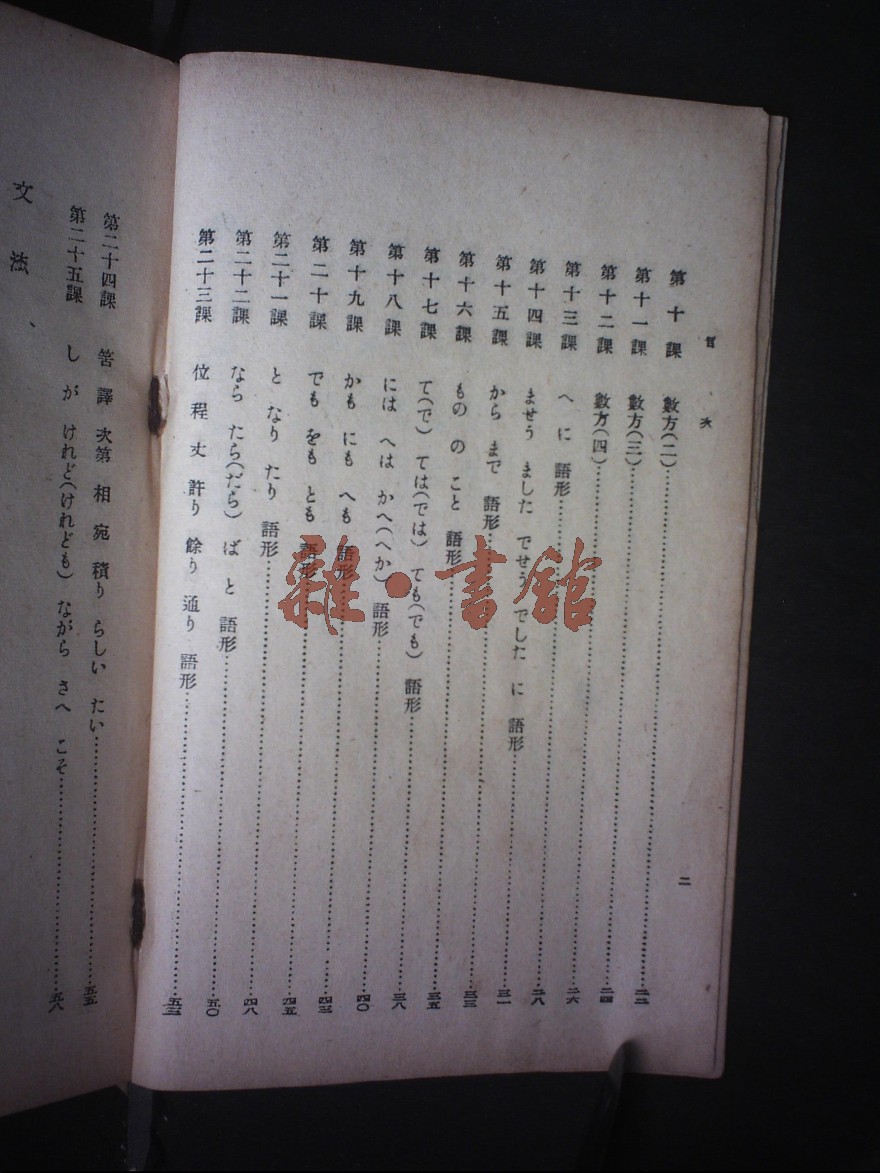 目次
二
第十課 數方(二)……二二
第十一課 數方(三)……二三
第十二課 數方(四)……二四
第十三課 へ に 語形……二六
第十四課 ませう ました でせう でした に 語形……二八
第十五課 から まで 語形……三一
第十六課 もの の こと 語形……三三
第十七課 て(で) ては(では) ても(でも) 語形……三五
第十八課 には へは かへ(へか) 語形……三八
第十九課 かも にも へも 語形……四〇
第二十課 でも をも とも 語形……四三
第二十一課 と なり たり 語形……四五
第二十二課 なら たら(だら) ば と 語形……四八
第二十三課 位 程 丈 許り 餘り 通り 語形……五〇
五三
第二十四課 筈 譯 次第 相 宛 積り らしい たい……五五
第二十五課 し が けれど(けれども) ながら さへ こそ……五八
文法、
雜·書館